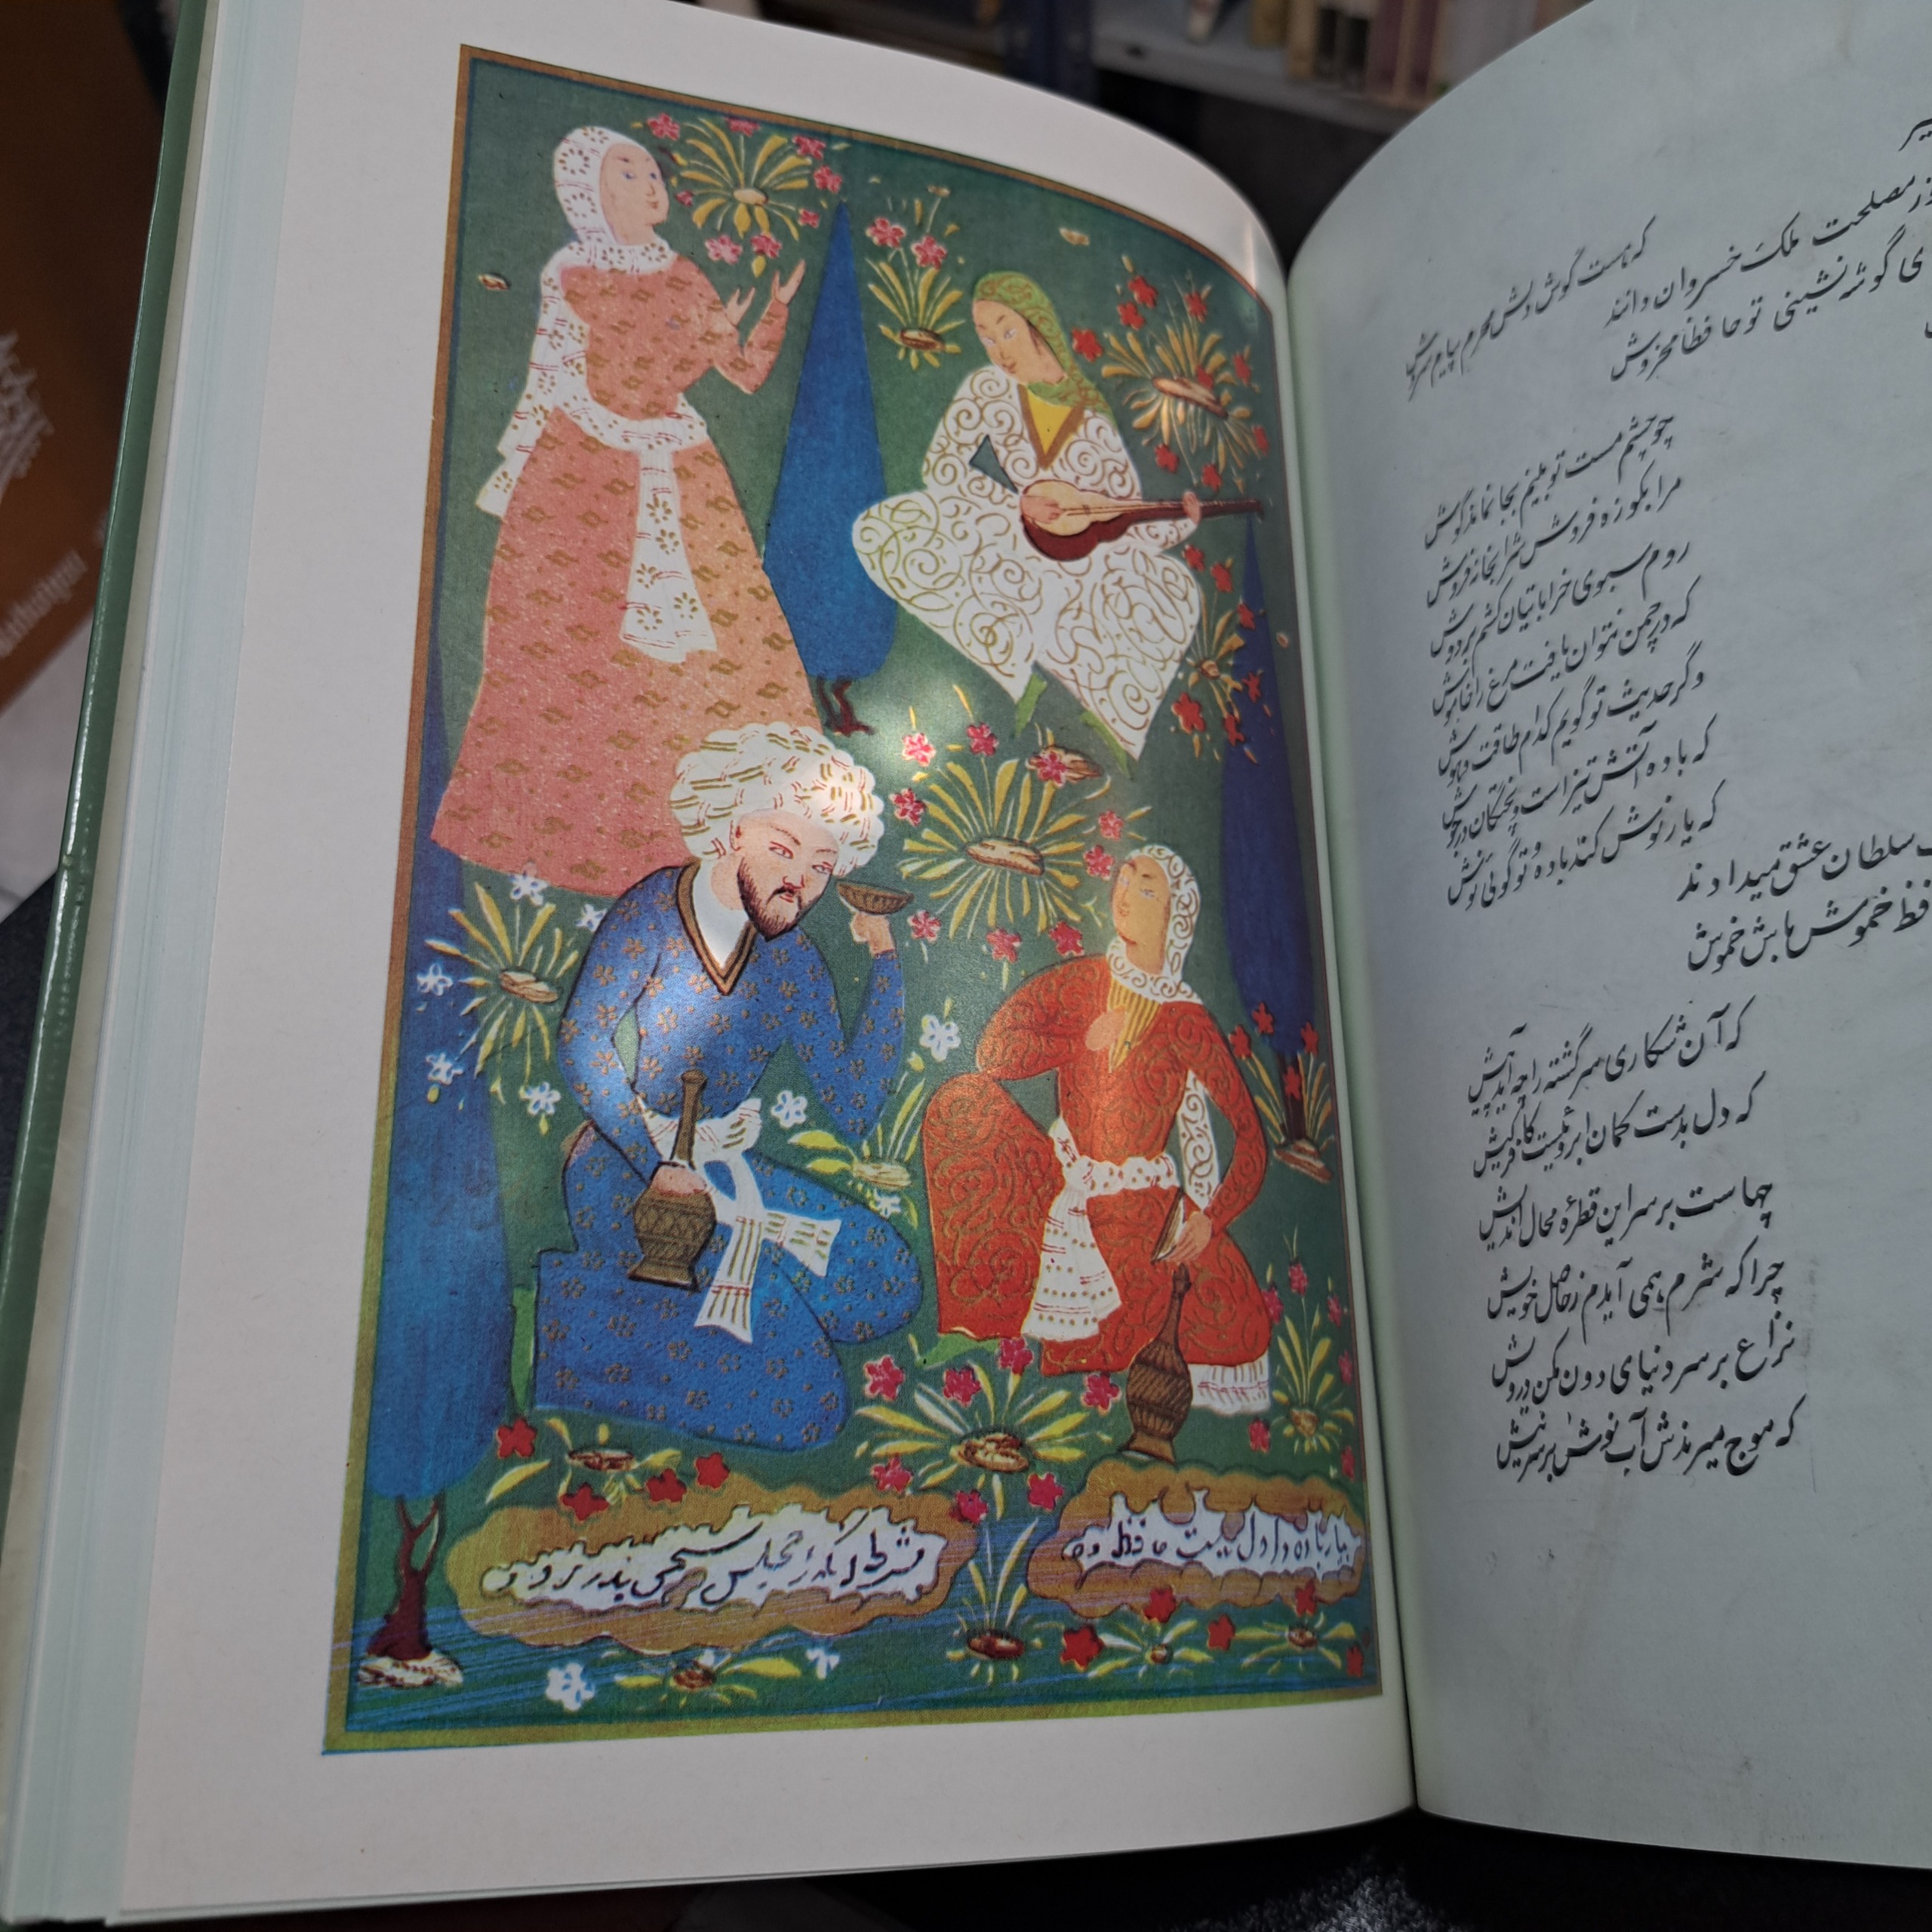 بیار باده و اول بدست حافظ ده
بشرط آنکه ز مجلس سخن بدر نرود
که هست گوش دلش محرم پیام سروش
مصلحت ملک خسروان دانند
گوشه نشینی تو حافظا مخروش
چو چشم مست تو بینم بجا نماند گوش
مرا بکوزه فروش شرابخانه فروش
روم سبوی خراباتیان کشم بر دوش
که در چمن نتوان یافت مرغ را خاموش
وگر حدیث تو گویم کدام طاقت و هوش
که باده آتش تیز است و پختگان در جوش
که یار نوش کند باده و تو گوئی نوش
سلطان عشق میدادند
خموش باش خموش
که آن شکاری سرگشته را چه آمد پیش
که دل بدست کمان ابروئیست کافر کیش
چهاست بر سر این قطرهٔ محال اندیش
چرا که شرم همی آیدم ز حاصل خویش
نزاع بر سر دنیای دون مکن درویش
که موج میزندش آب نوش بر سر نیش